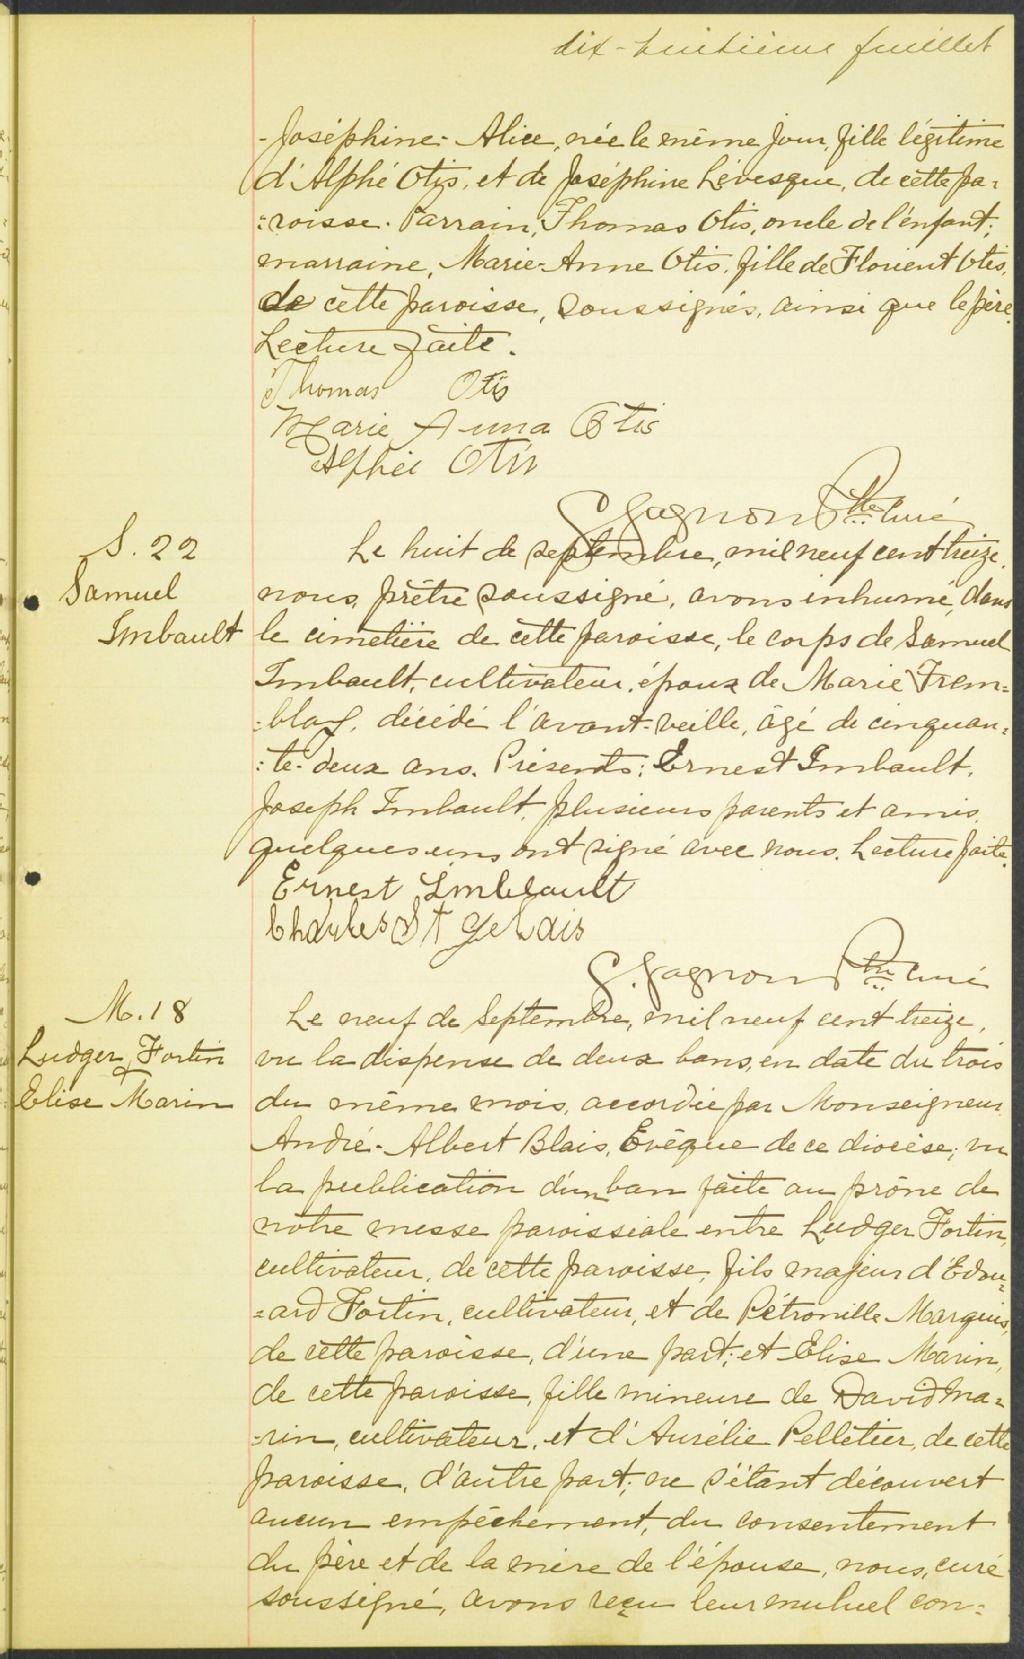 dix-huitième feuillet
-Joséphine-Alice, née le même jour, fille légitime
d'Alphé Otis, et de Joséphine Lévesque, de cette pa-
-roisse. Parrain, Thomas Otis, oncle de l'enfant;
marraine, Marie-Anne Otis, fille de Florient Otis,
de cette paroisse, soussignés, ainsi que le père.
Lecture faite.
Thomas Otis
Marie Anna Otis
Alphé Otis
G. Gagnon Ptre Curé
S. 22
Samuel
Imbault
Le huit de septembre, mil neuf cent treize,
nous, prêtre soussigné, avons inhumé, dans
le cimetière de cette paroisse, le corps de Samuel
Imbault, cultivateur, époux de Marie Trem-
-blay, décédé l'avant-veille, âgé de cinquan-
-te-deux ans. Présents: Ernest Imbault,
Joseph Imbault, plusieurs parents et amis,
quelques uns ont signé avec nous. Lecture faite.
Ernest Imbeault
Charles St Gelais
G. Gagnon Ptre curé
M. 18
Ludger Fortin
&
Elise Marin
Le neuf de Septembre, mil neuf cent treize,
vu la dispense de deux bans, en date du trois
du même mois, accordée par Monseigneur
André-Albert Blais, Evêque de ce diocèse; vu
la publication d'un ban faite au prône de
notre messe paroissiale entre Ludger Fortin,
cultivateur, de cette paroisse, fils majeur d'Edou-
-ard Fortin, cultivateur, et de Pétronille Marquis,
de cette paroisse, d'une part; et Elise Marin,
de cette paroisse, fille mineure de David Ma-
-rin, cultivateur, et d'Aurélie Pelletier, de cette
paroisse, d'autre part; ne s'étant découvert
aucun empêchement, du consentement
du père et de la mère de l'épouse, nous, curé
soussigné, avons reçu leur mutuel con-